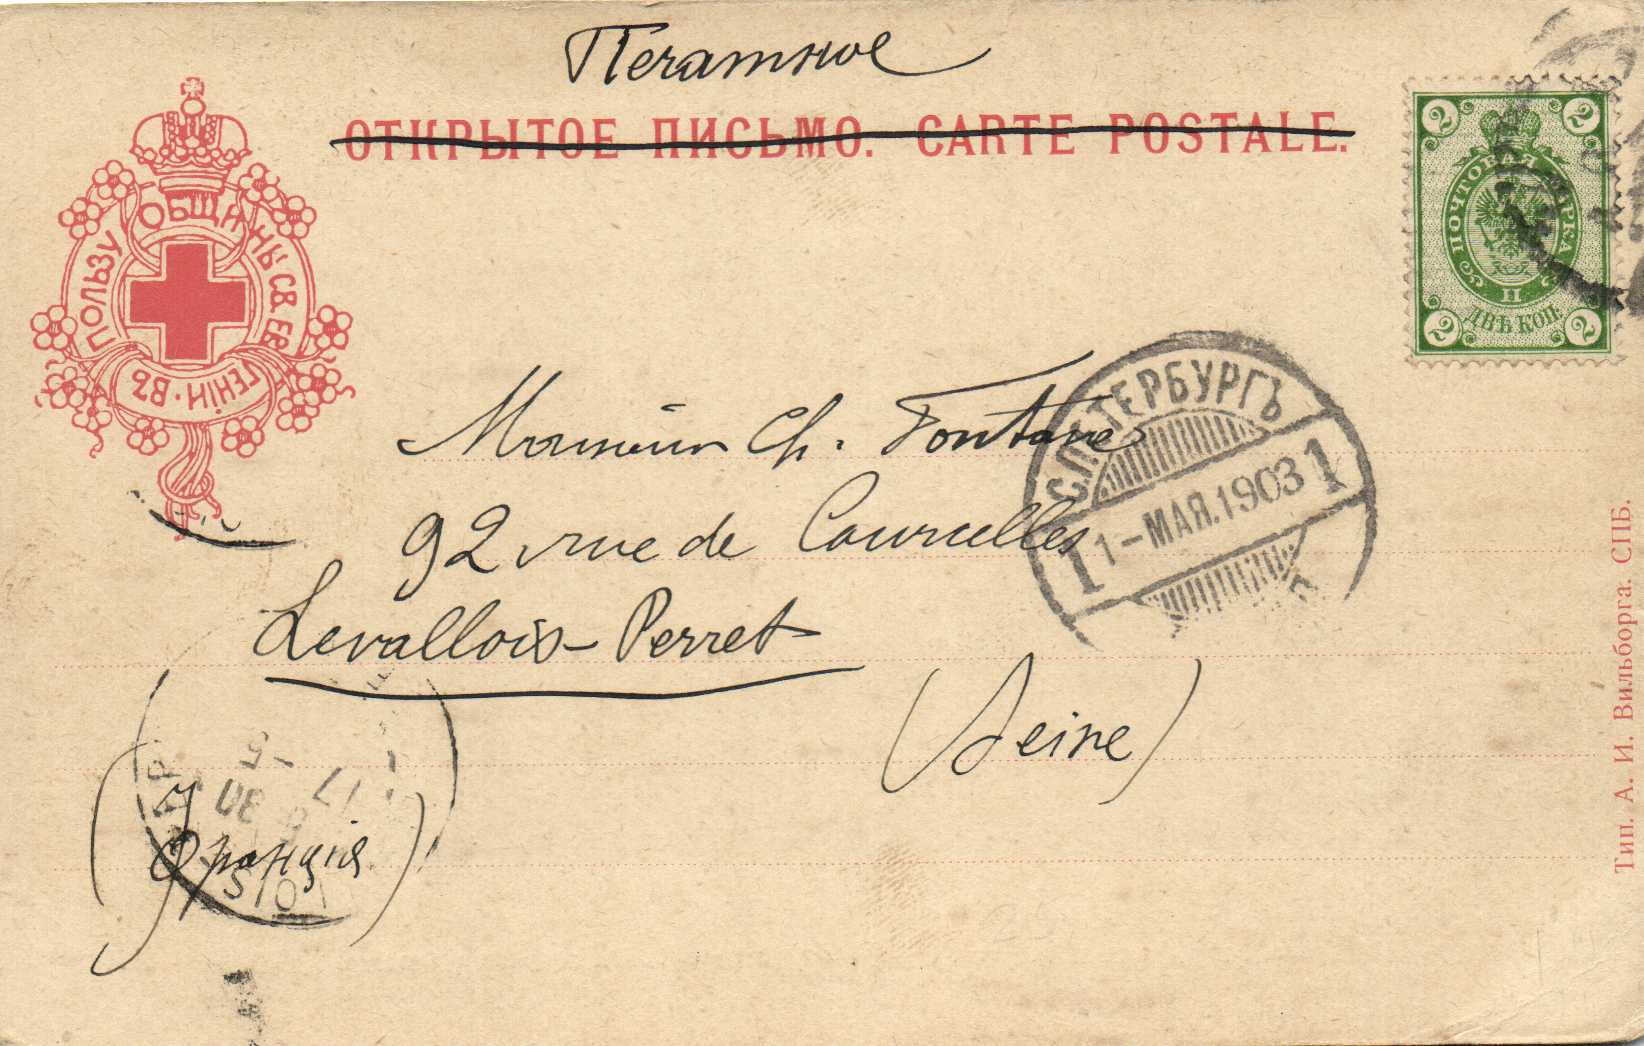 Печатное
ОТКРЫТОЕ ПИСЬМО. CARTE POSTALE.
ВЪ ПОЛЬЗУ ОБЩИНЫ СВ. ЕВГЕНІИ ·
2 2
ПОЧТОВАЯ МАРКА
II
ДВѢ КОП.
2 2
С.ПЕТЕРБУРГЪ
1 1-МАЯ.1903 1
Monsieur Ch. Fontane
92 rue de Courcelles
Levallois-Perret
(Seine)
(Франція)
Тип. А. И. Вильборга. СПБ.